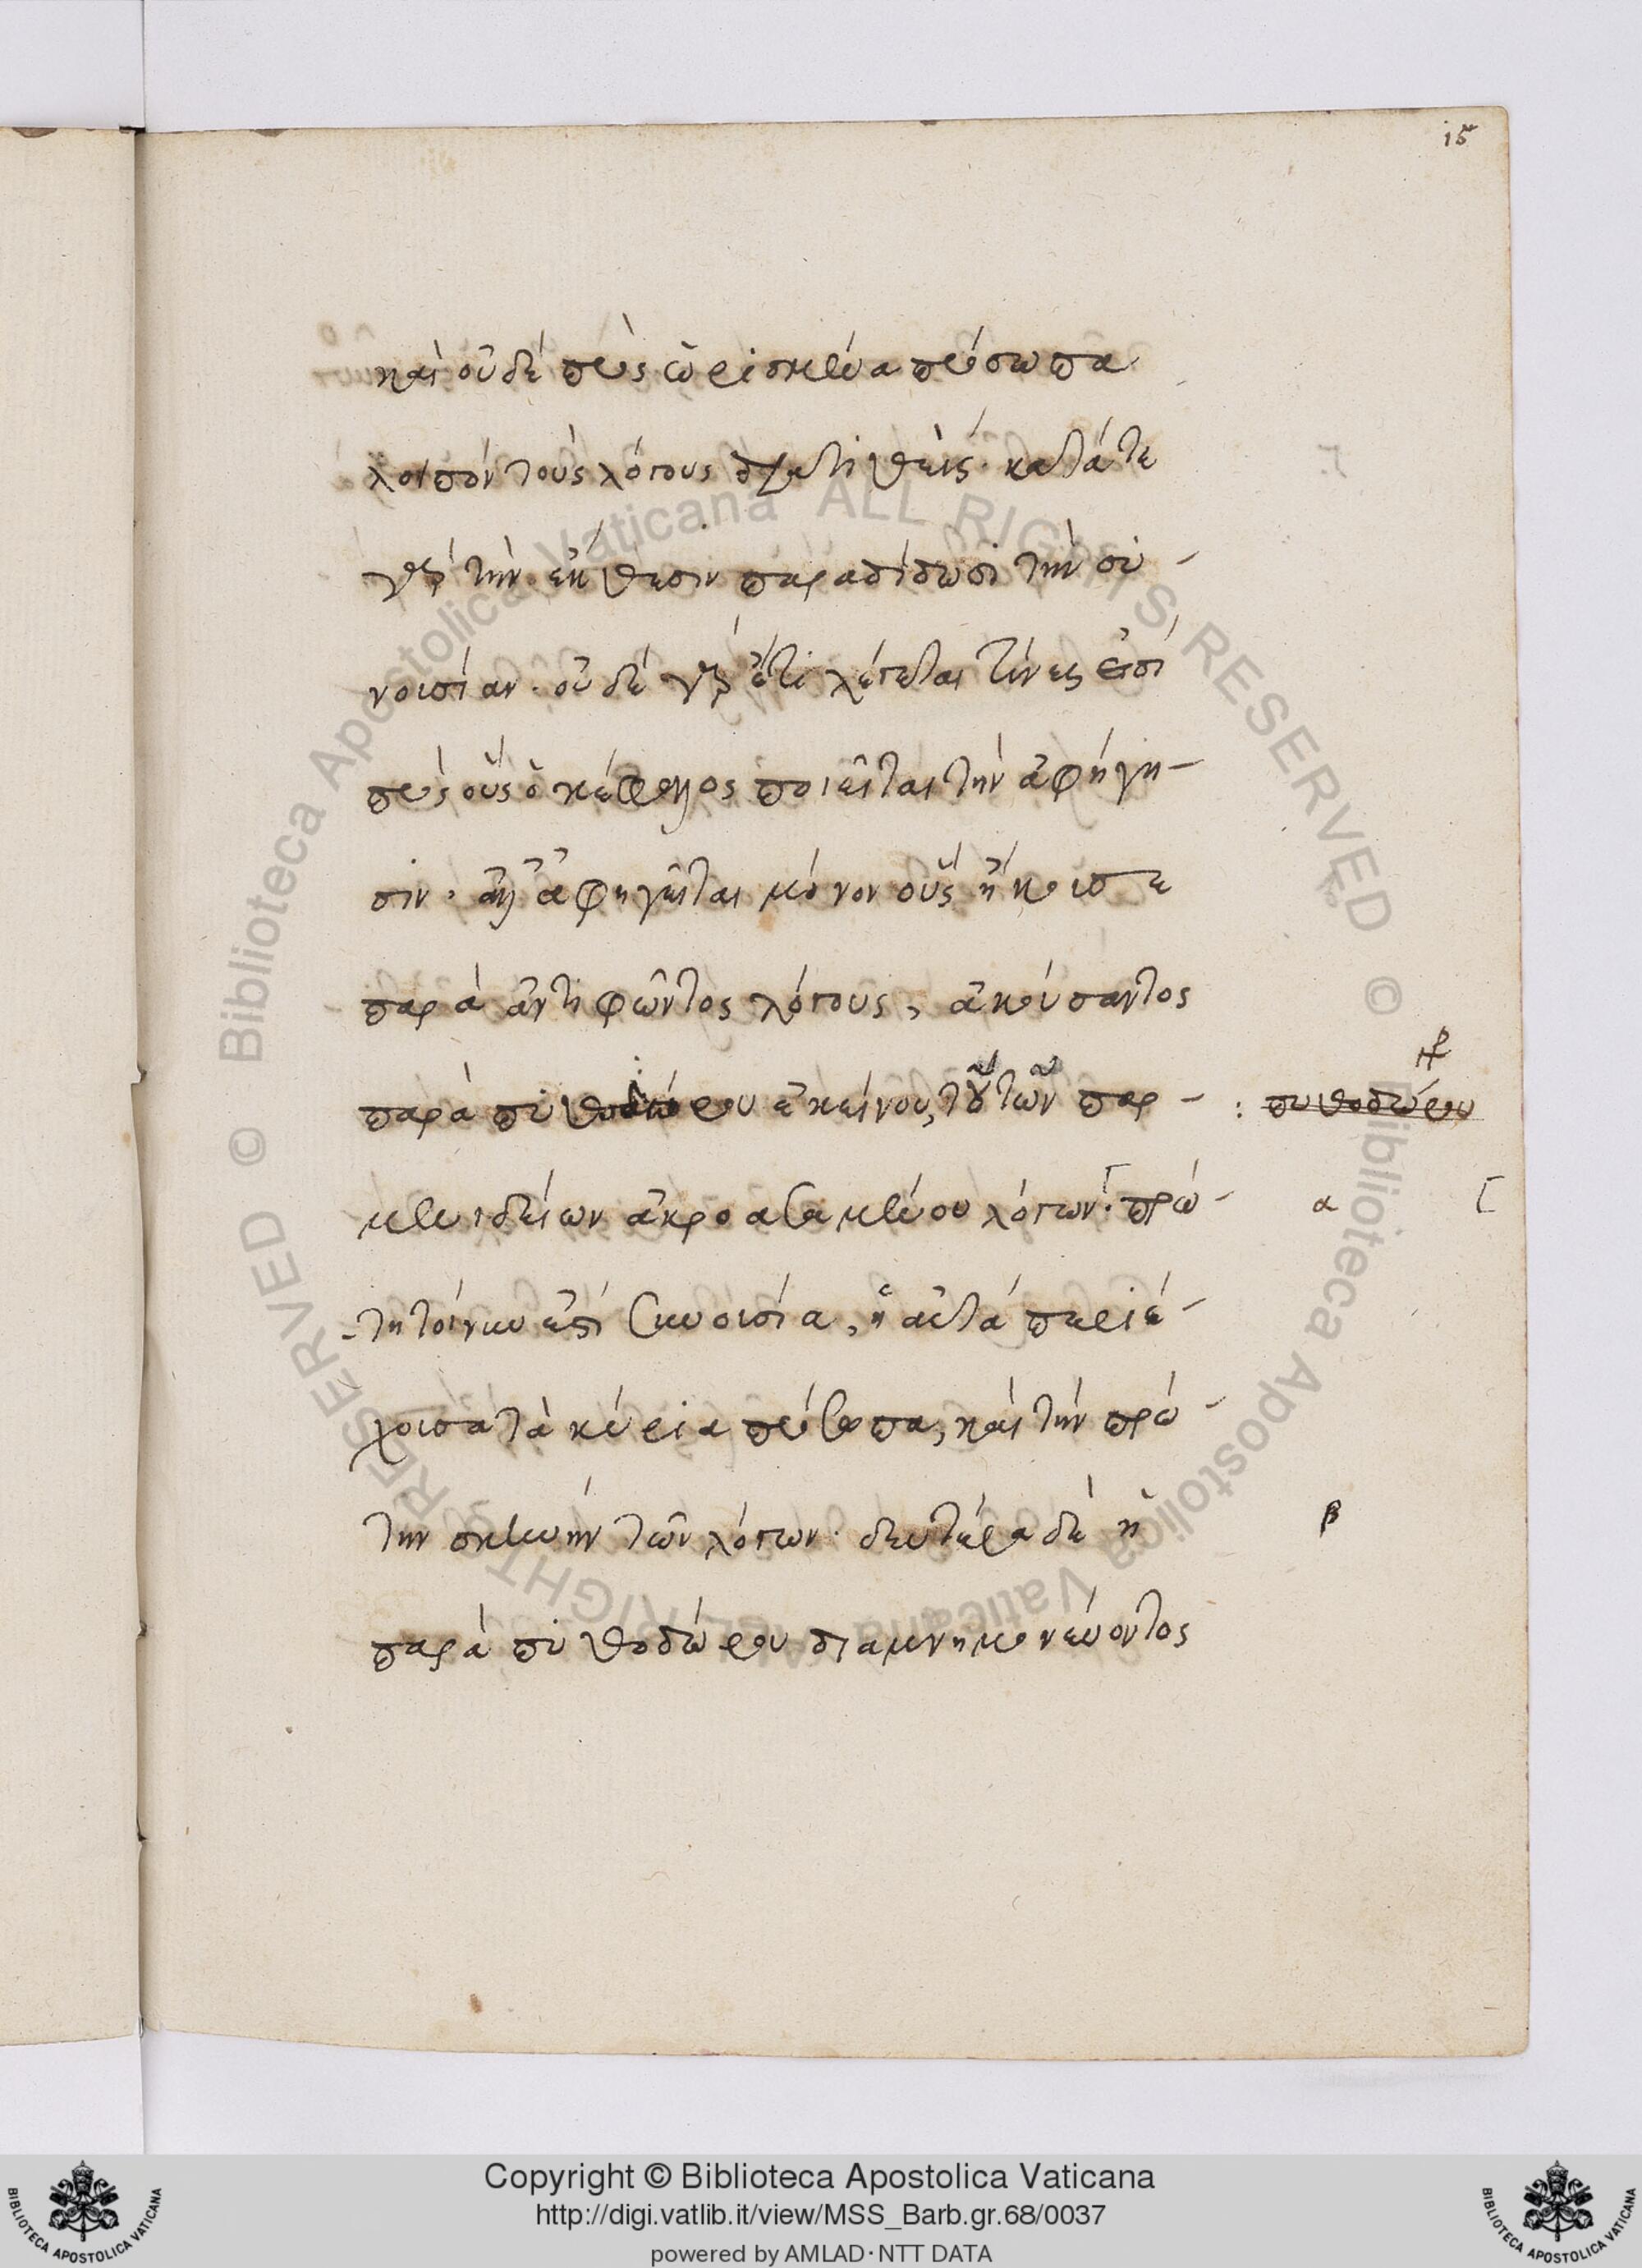 15
καὶ οὐδὲ πρὸς ὡρισμένα πρόσωπα
λοιπὸν τοὺς λόγους διατιθείς· κατά τε
γὰρ τὴν ἔκθεσιν παραδίδωσι τὴν συ-
νουσίαν. οὐδὲ γὰρ ἔτι λέγεται τίνες εἰσὶ
πρὸς οὓς ὁ κέφαλος ποιεῖται τὴν ἀφήγη-
σιν. ἀλλ' ἀφηγεῖται μόνον οὓς ἤκουσε
παρὰ ἀντιφῶντος λόγους, ἀκούσαντος
παρὰ πυθοδώρου ἐκείνου, τοῦ τῶν παρ-
: πυθοδώρου
μενιδείων ἀκροασαμένου λόγων. πρώ-
α [
τη τοίνυν ἐστὶ συνουσία, ἡ αὐτὰ περιέ-
χουσα τὰ κύρια πρόσωπα, καὶ τὴν πρώ-
την σκηνὴν τῶν λόγων. δευτέρα δὲ ἡ
β
παρὰ πυθοδώρου διαμνημονεύοντος
© Biblioteca Apostolica Vaticana ALL RIGHTS RESERVED © Biblioteca Apostolica Vaticana ALL RIGHTS RESERVED
BIBLIOTECA APOSTOLICA VATICANA
Copyright © Biblioteca Apostolica Vaticana
http://digi.vatlib.it/view/MSS_Barb.gr.68/0037
powered by AMLAD·NTT DATA
BIBLIOTECA APOSTOLICA VATICANA